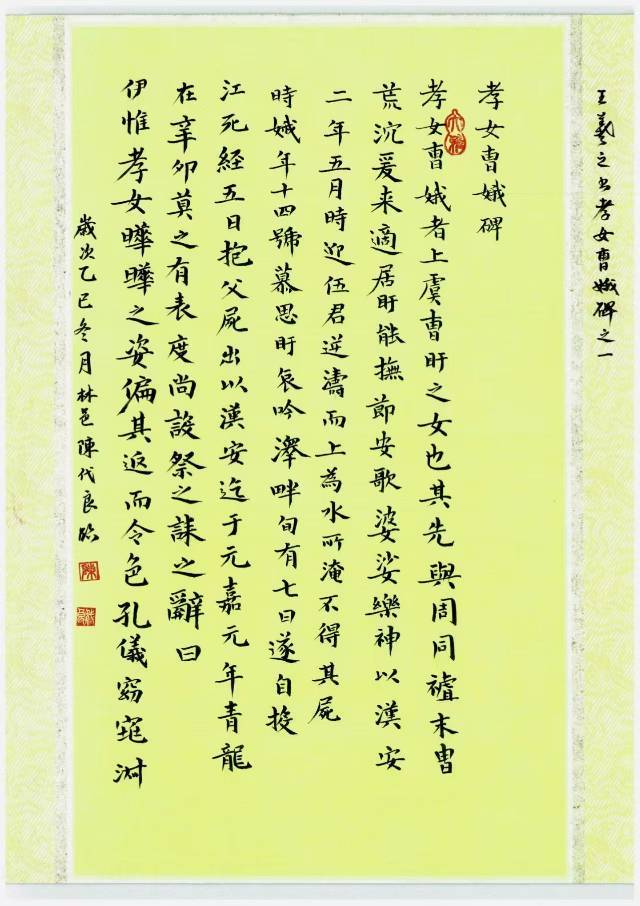 王羲之书孝女曹娥碑之一
孝女曹娥碑
孝女曹娥者上虞曹盱之女也其先與周同禇末胄
荒沉爰来適居盱能撫節安歌婆娑樂神以漢安
二年五月時迎伍君逆濤而上為水所淹不得其屍
時娥年十四號慕思盱哀吟澤畔旬有七日遂自投
江死經五日抱父屍出以漢安迄于元嘉元年青龍
在辛卯莫之有表度尚設祭之誄之辭曰
伊惟孝女曄曄之姿偏其返而令色孔儀窈窕淑
歲次乙巳冬月林邑陳代良臨